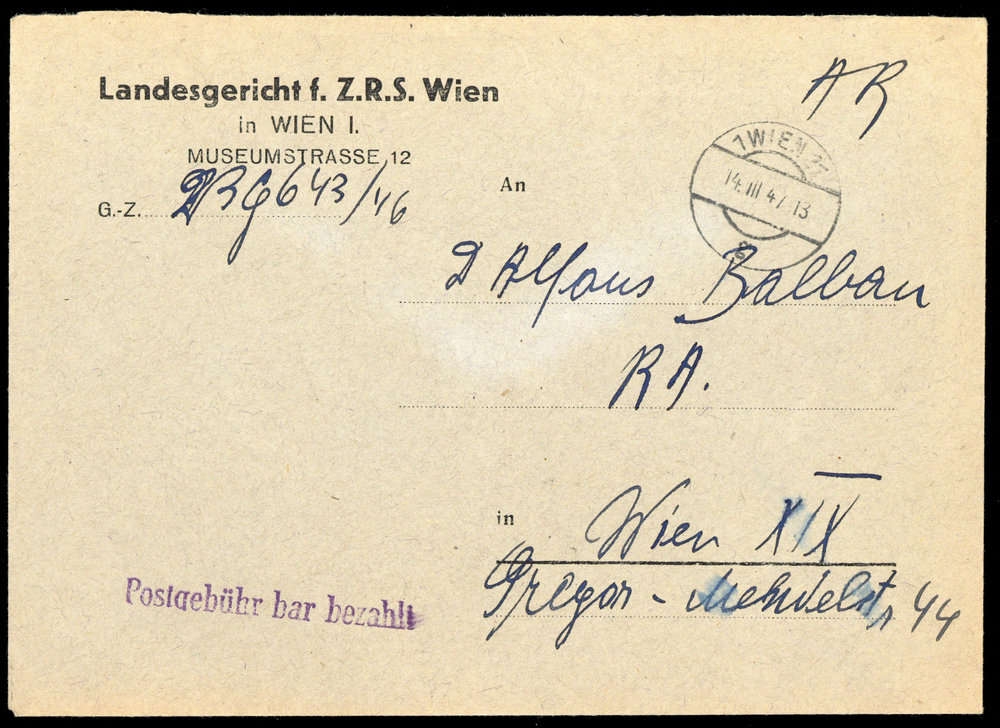 Landesgericht f. Z.R.S. Wien
in WIEN I.
MUSEUMSTRASSE 12
G.-Z. BG 643/46
AR
1 WIEN
14.III 47. 13
An
D Alfons Balban
RA.
in Wien XIX
Gregor-Mendelstr 44
Postgebühr bar bezahlt